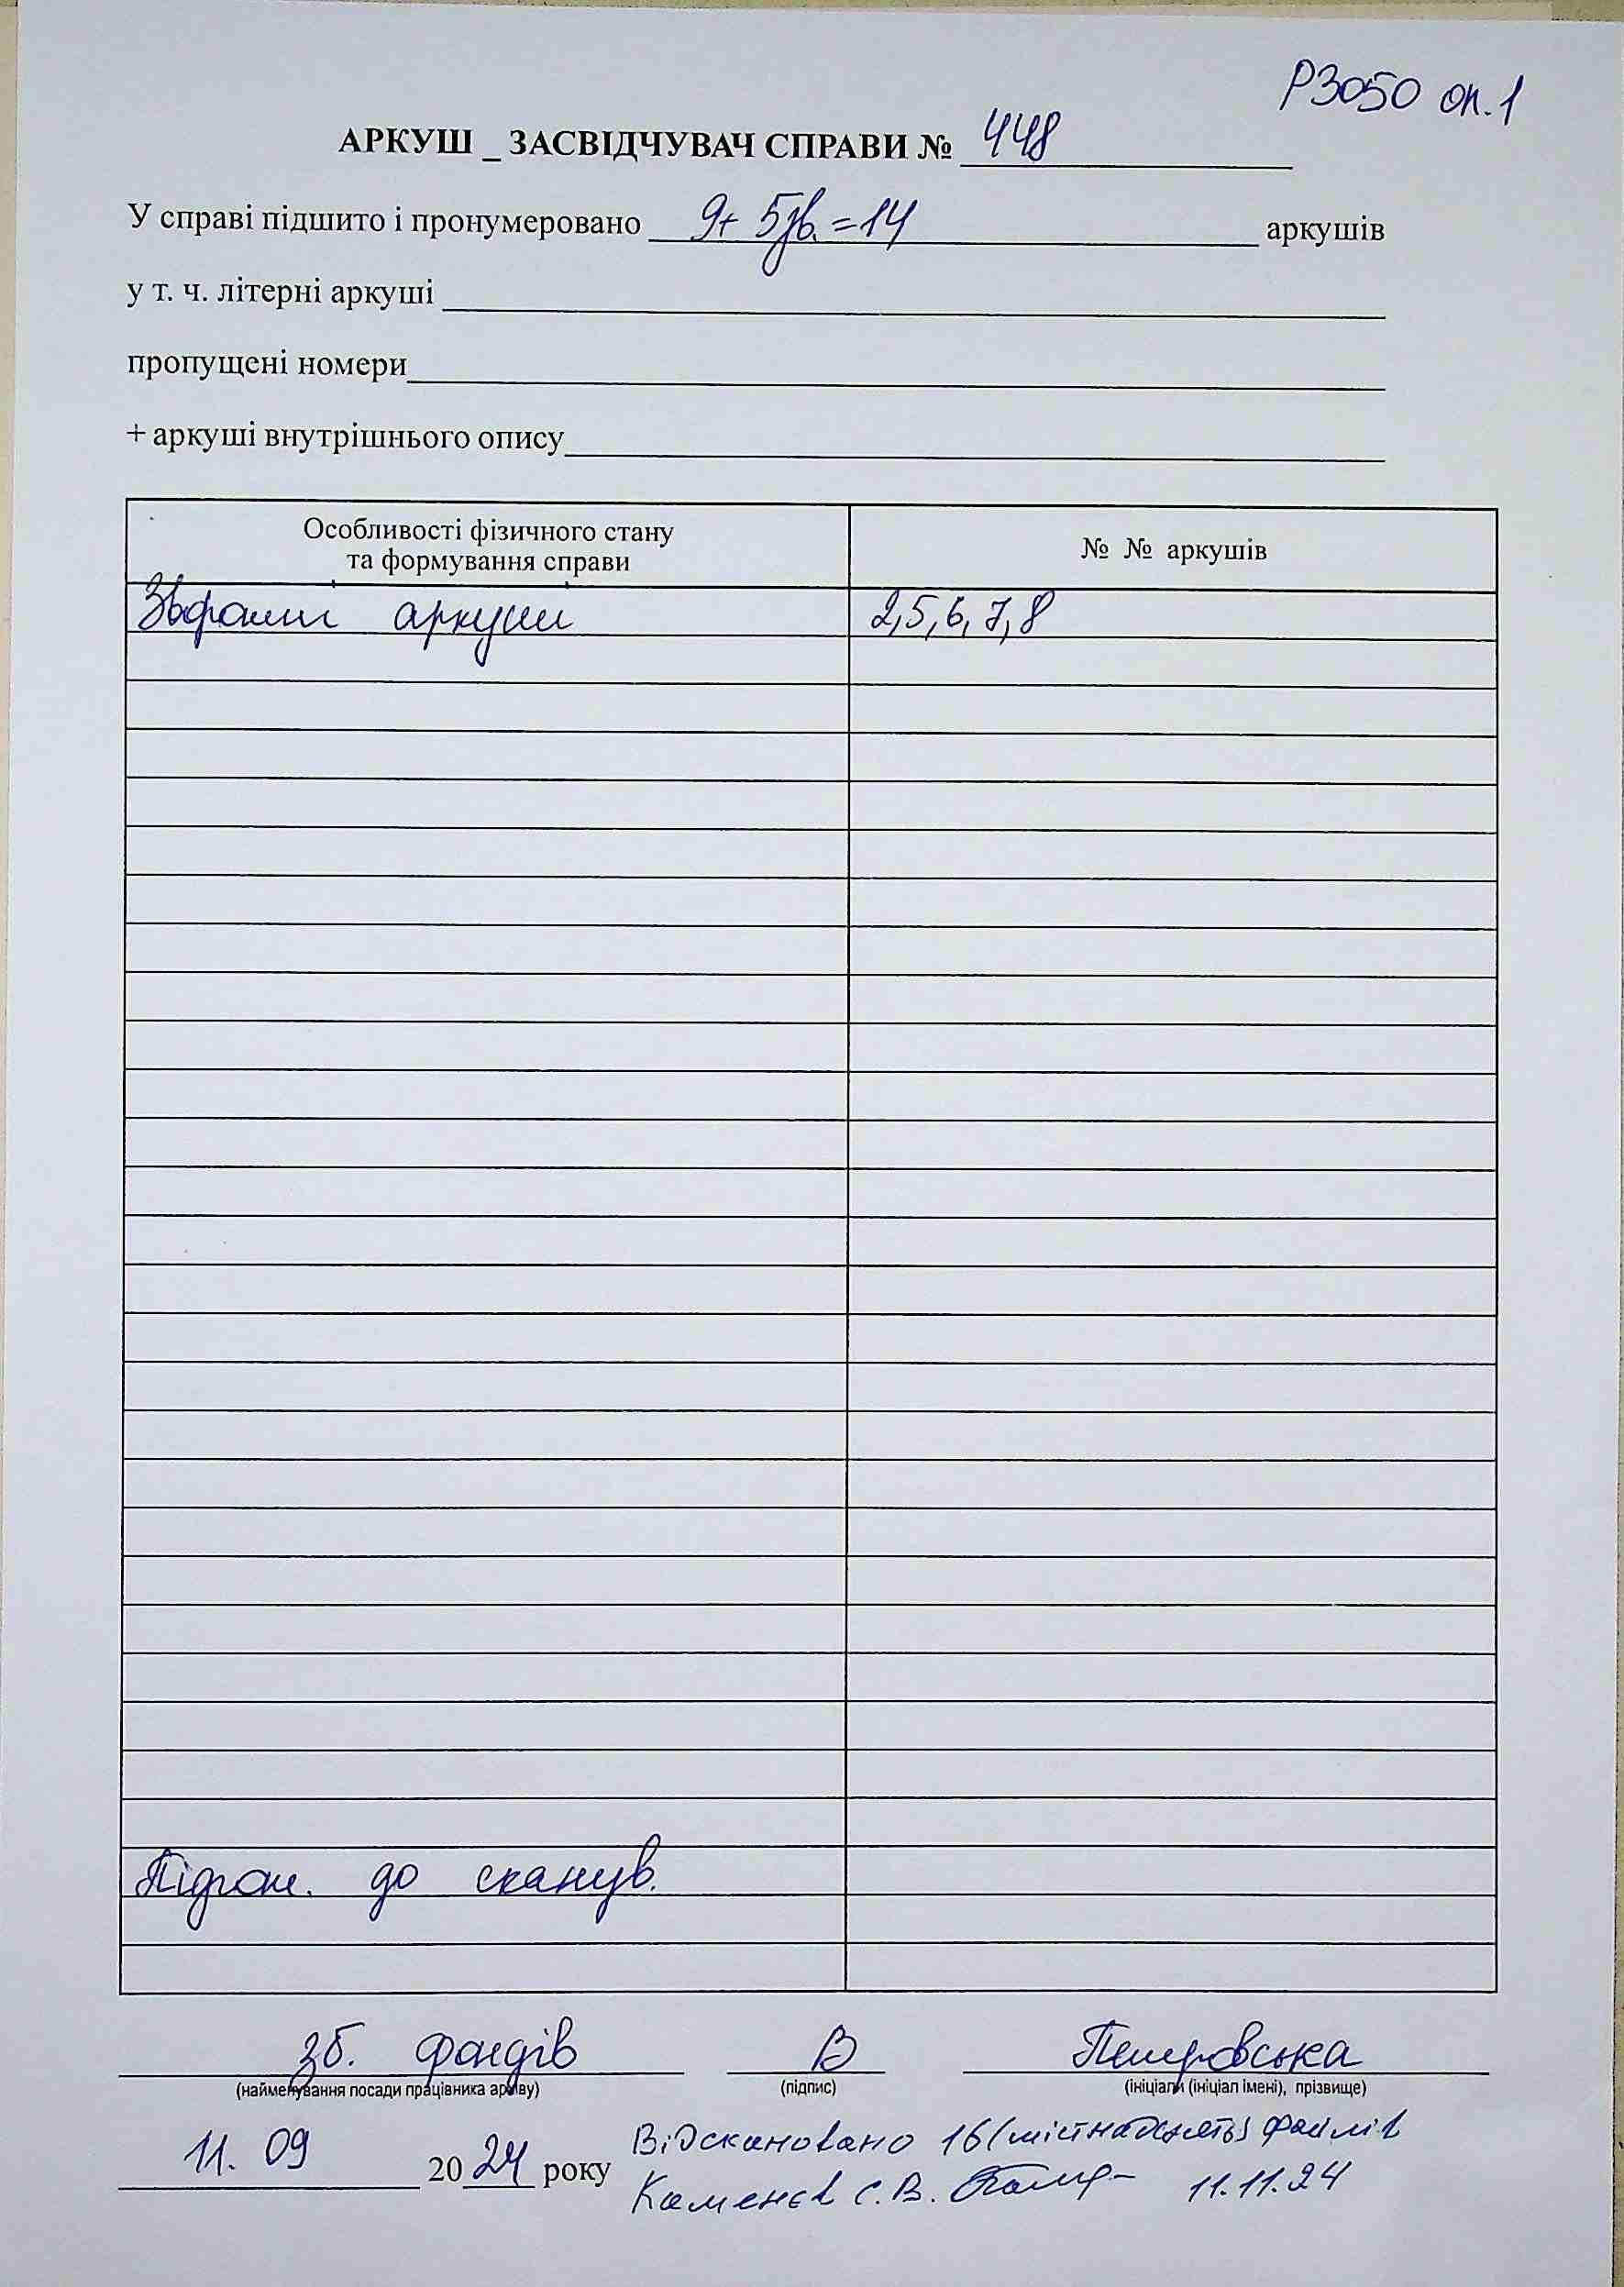 Р3050 оп.1
АРКУШ _ ЗАСВІДЧУВАЧ СПРАВИ № 448
У справі підшито і пронумеровано 9+ 5зв.=14 аркушів
у т. ч. літерні аркуші
пропущені номери
+ аркуші внутрішнього опису
Особливості фізичного стану
та формування справи
№ № аркушів
аркуши 2,5,6,7,8
до сканув.
зб. фондів В
(найменування посади працівника архіву) (підпис) (ініціали (ініціал імені), прізвище)
11. 09 2024 року
Відскановано 16 (шістнадцять) файлів
Каменєв С.В. 11.11.24